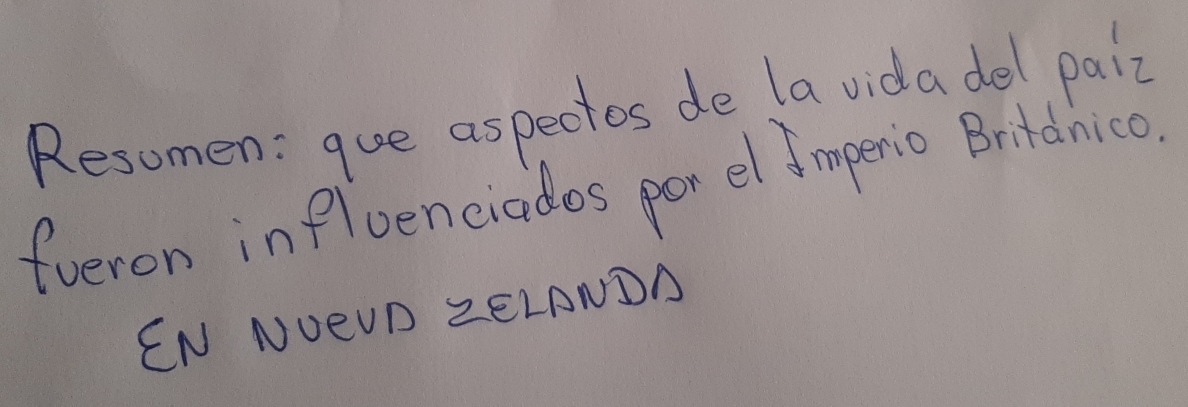 Resumen: que aspectos de la vida del païz
fueron influenciados por el Imperio Británico.
EN NUEVA ZELANDA